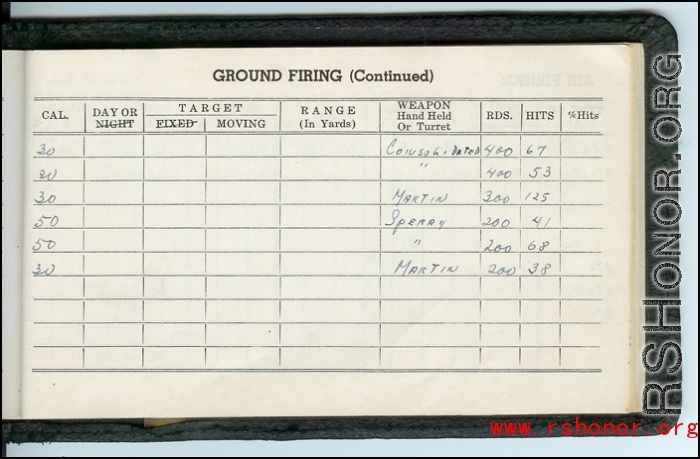 GROUND FIRING (Continued)
CAL. DAY OR NIGHT TARGET FIXED MOVING RANGE (In Yards) WEAPON Hand Held Or Turret RDS. HITS %Hits
30 Consolidated 400 67
30 " 400 53
30 MARTIN 300 125
50 SPERRY 200 41
50 " 200 68
30 MARTIN 200 38
RSHONOR.ORG
www.rshonor.org